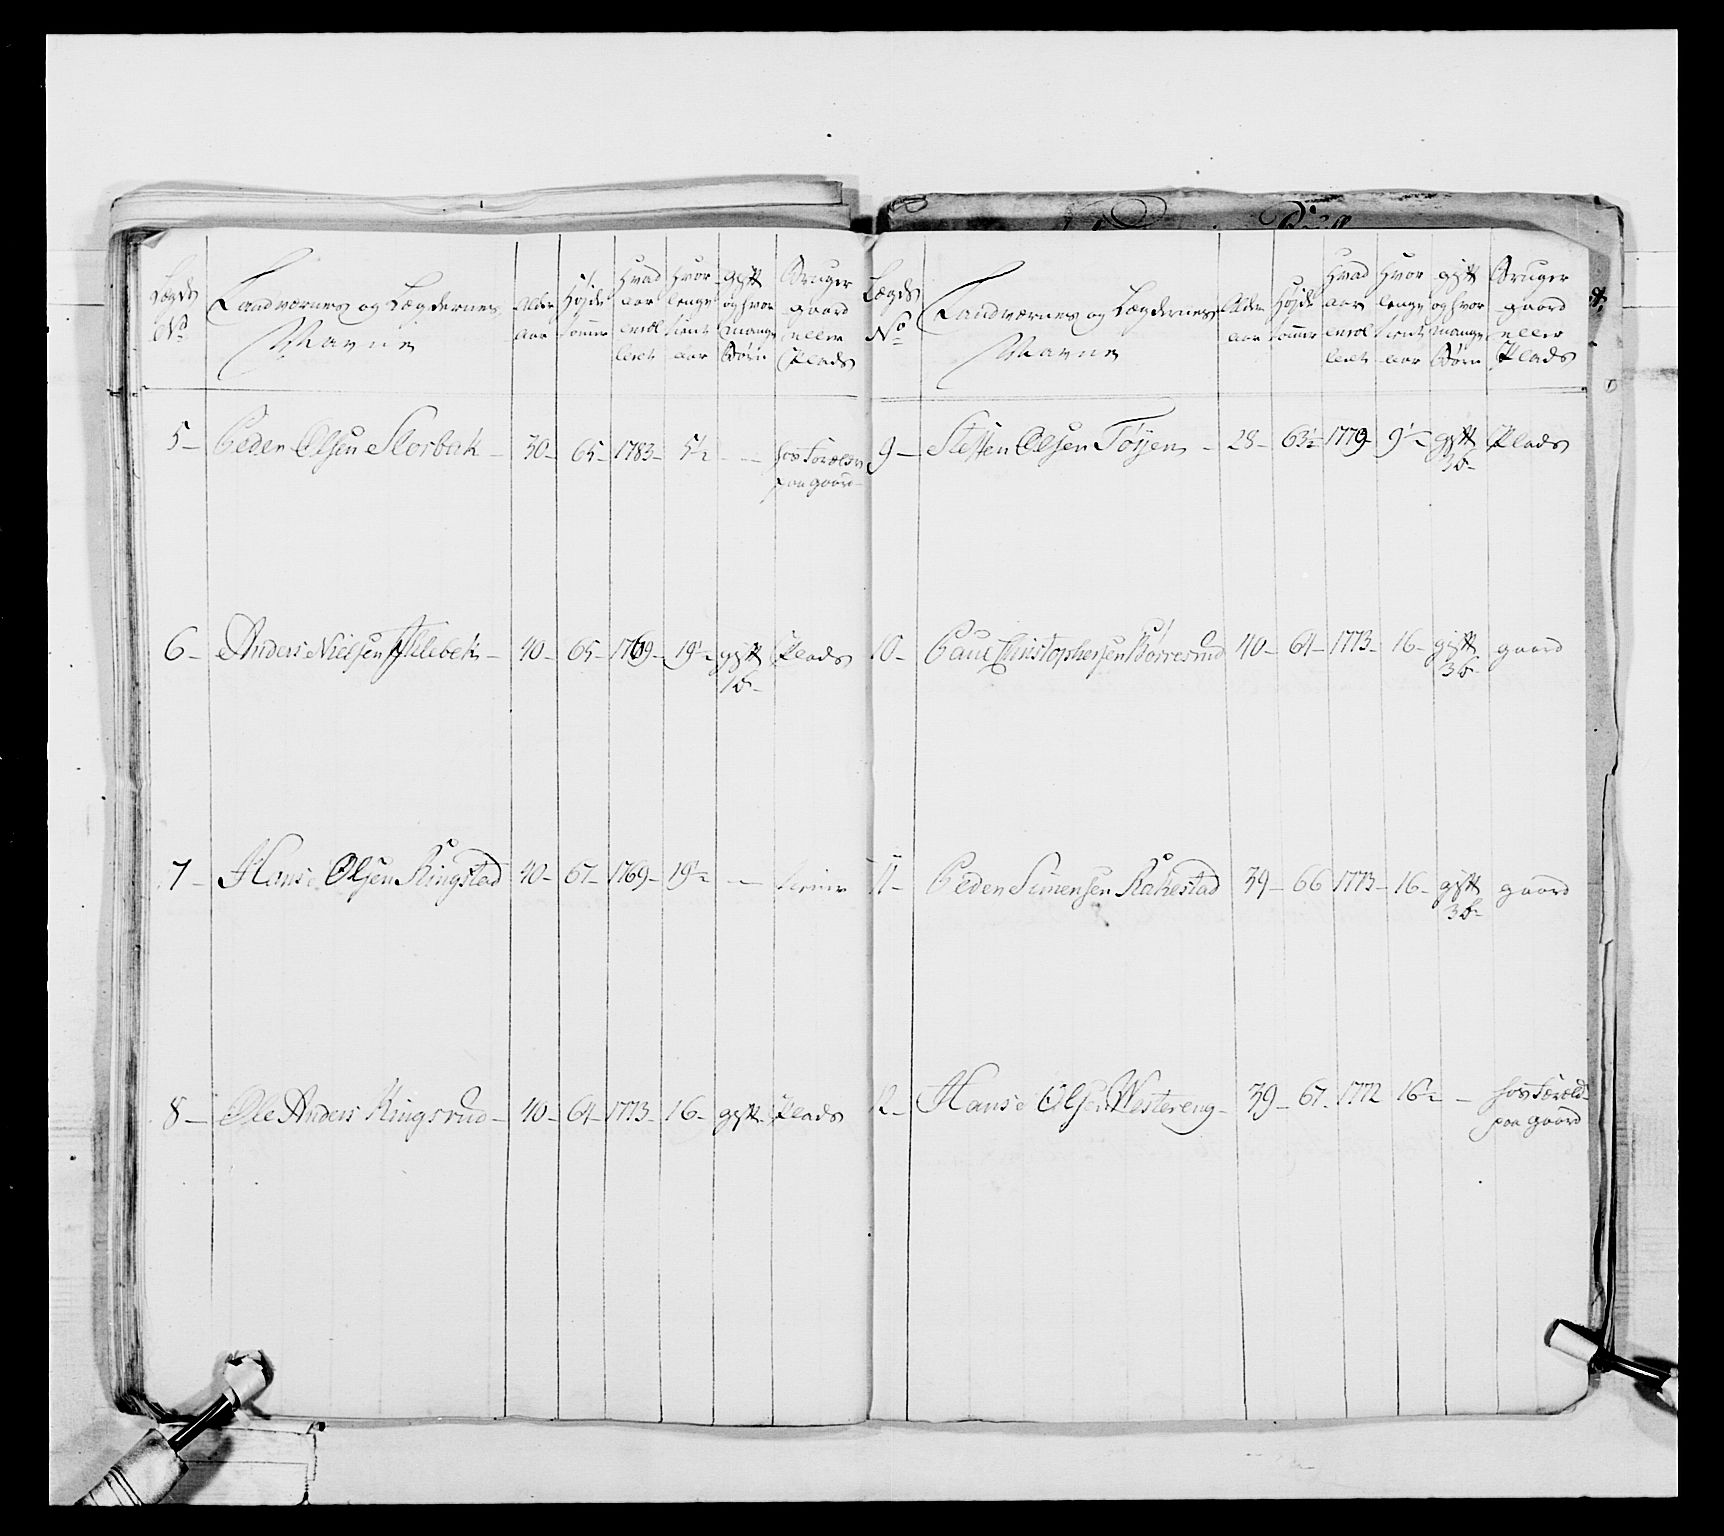 Lægds No Landværnes og Lægdernes Navne Alder aar Høyde tomer Hvad aar enrol leret Hvor lenge tient aar gift og hvor mange Børn Bruger gaard eller Plads
5 – Peder Olsen Storbak – 30 – 65 – 1783 – 5½ – – hos Foreldr
paa gaard –
6 – Anders Nielsen Ullebek – 40 – 65 – 1769 – 19½ – gift Plads
1 b –
7 – Hans Olsen Ringstad 40 – 67 – 1769 – 19½ – –
8 – Ole Anders Ringsrud – 40 – 64 – 1773 – 16 – gift – Plads
Lægds No Landværnes og Lægdernes Navne Alder aar Høyde tomer Hvad aar enrol leret Hvor lenge tient aar gift og hvor mange Børn Bruger gaard eller Plads
9 – Steffen Olsen Tøyen – 28 – 63½ – 1779 – 9½ – gift Plads
3 b –
10 – Paul Christophersen Børresrud 40 – 64 – 1773 – 16 – gift gaard
3 b –
11 – Peder Simensen Rakestad 39 – 66 1773 – 16 – gift gaard
3 b –
12 – Hans Olsen Westereng – 39 – 67 – 1772 16½ – hos Foræld –
paa gaard